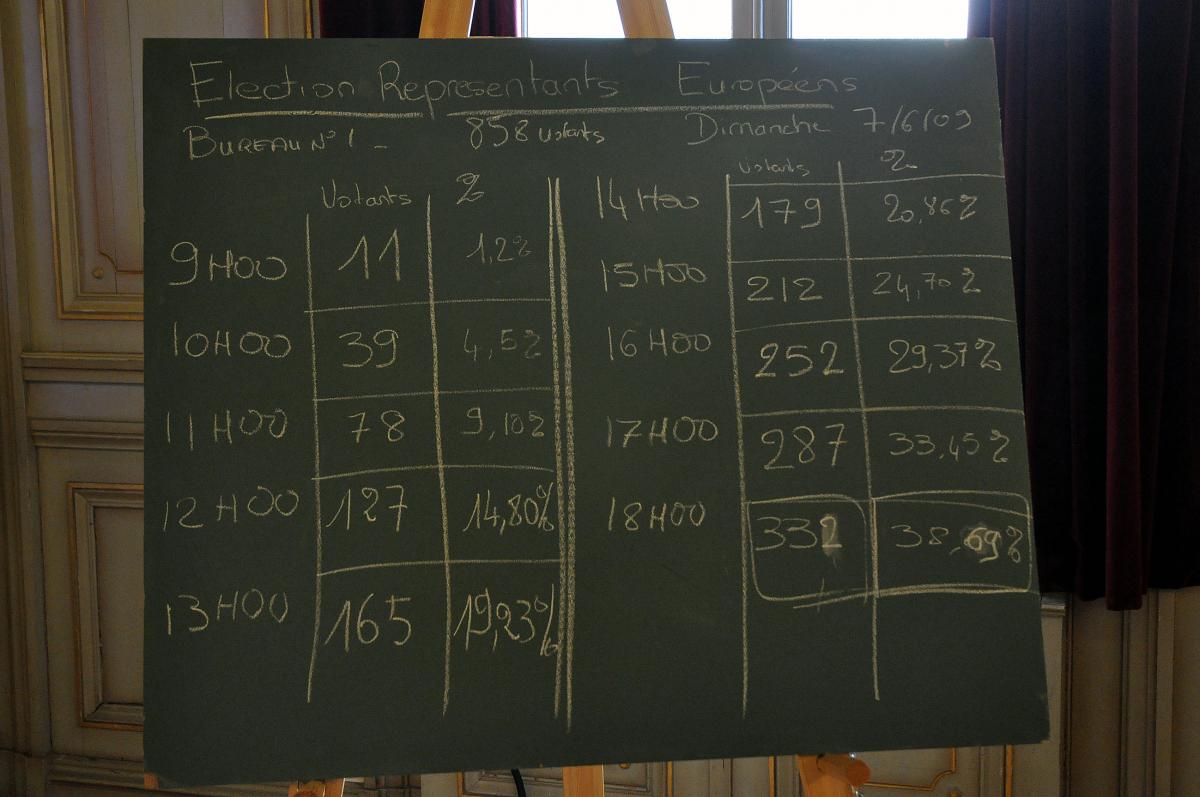 Election Representants Européens
BUREAU N° 1 - 858 votants Dimanche 7/6/09
Votants %
9H00 11 1,2%
10H00 39 4,5%
11H00 78 9,10%
12H00 127 14,80%
13H00 165 19,23%
Votants %
14H00 179 20,86%
15H00 212 24,70%
16H00 252 29,37%
17H00 287 33,45%
18H00 332 38,69%